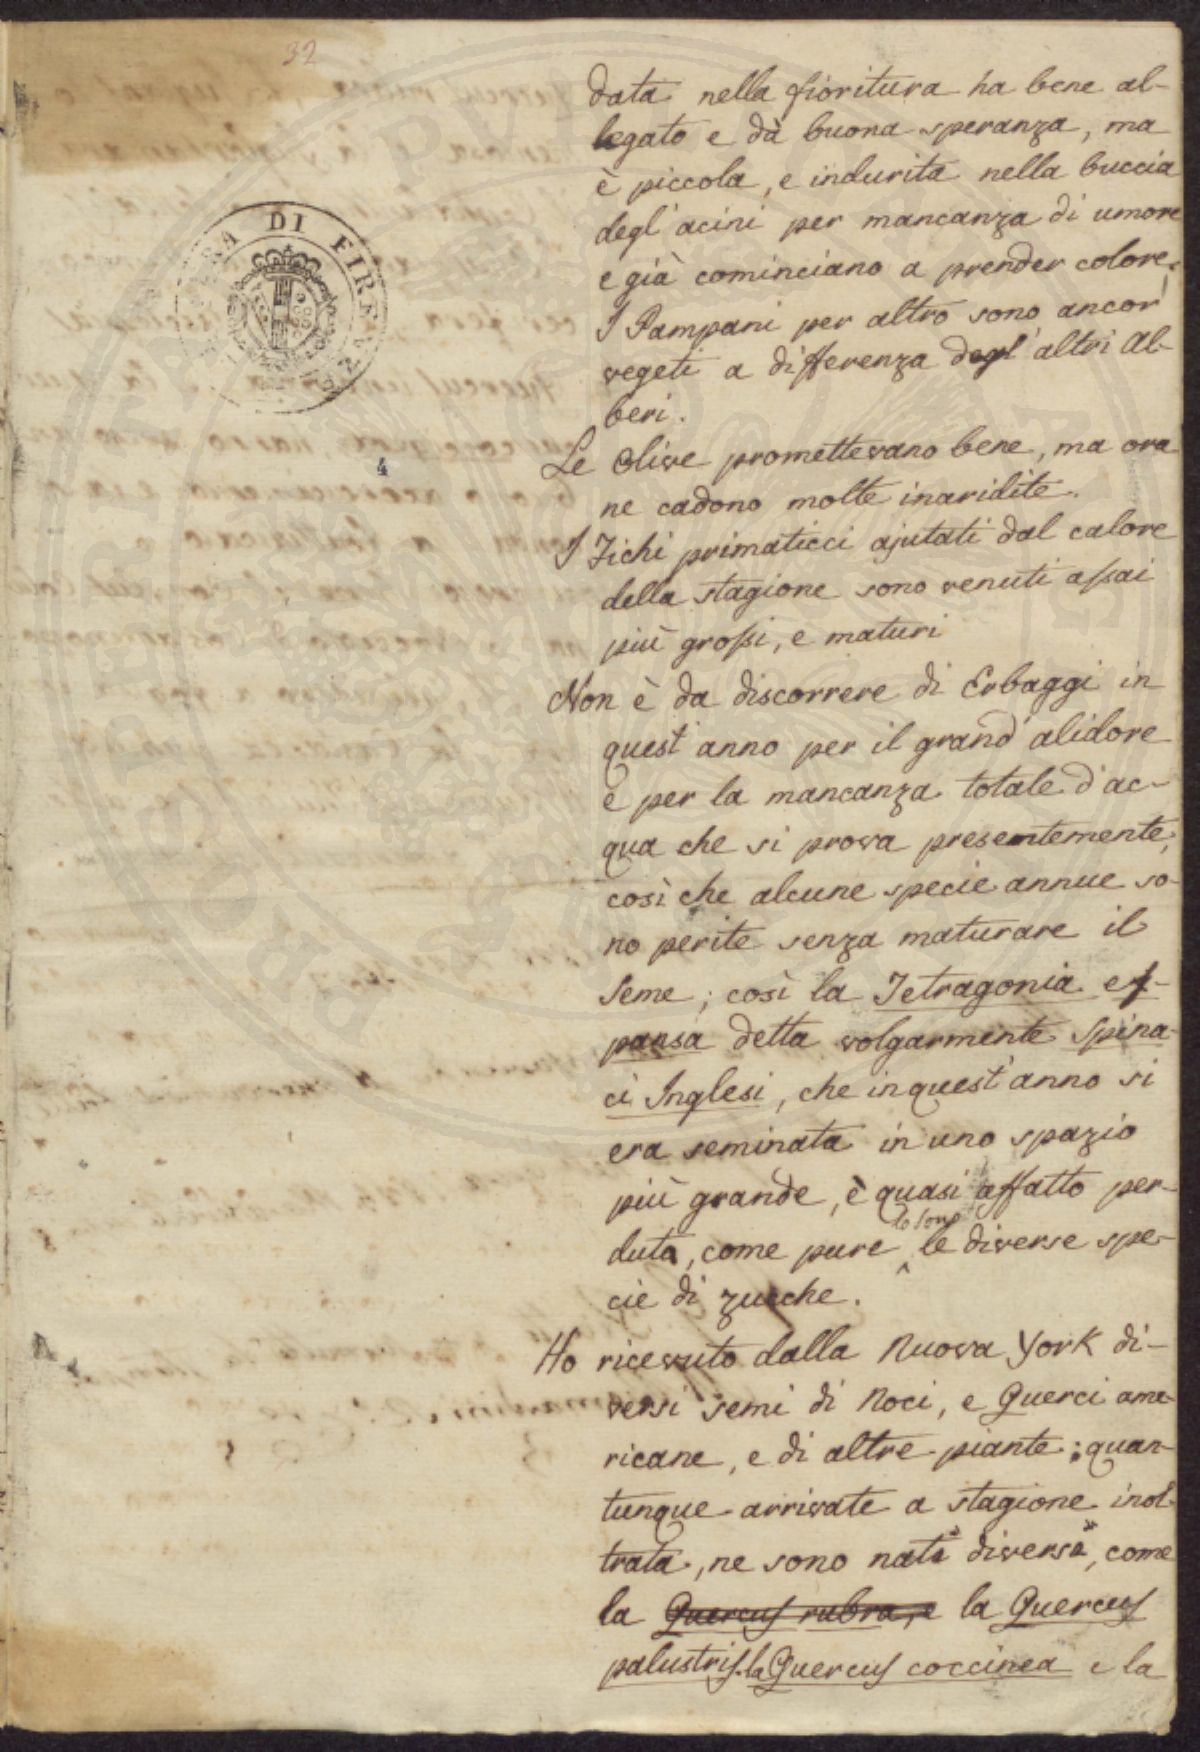 32
data nella fioritura ha bene al-
legato e dà buona speranza, ma
è piccola, e indurita nella buccia
degl' acini per mancanza di umore
e già cominciano a prender colore.
I Pampani per altro sono ancor
vegeti a differenza degl' altri Al-
beri.
DI FIRENZE
4
Le Olive promettevano bene, ma ora
ne cadono molte inaridite.
I Fichi primaticci ajutati dal calore
della stagione sono venuti assai
più grossi, e maturi
Non è da discorrere di Erbaggi in
quest' anno per il grand' alidore
e per la mancanza totale d'ac-
qua che si prova presentemente,
così che alcune specie annue so-
no perite senza maturare il
seme; così la Tetragonia ex-
pansa detta volgarmente Spina-
ci Inglesi, che in quest' anno si
era seminata in uno spazio
più grande, è quasi affatto per-
duta, come pure lo sono le diverse spe-
cie di zucche.
Ho ricevuto dalla Nuova York di-
versi semi di Noci, e Querci ame-
ricane, e di altre piante; quan-
tunque arrivate a stagione inol-
trata, ne sono nati diversi, come
la Quercus rubra, e la Quercus
palustris. la Quercus coccinea e la